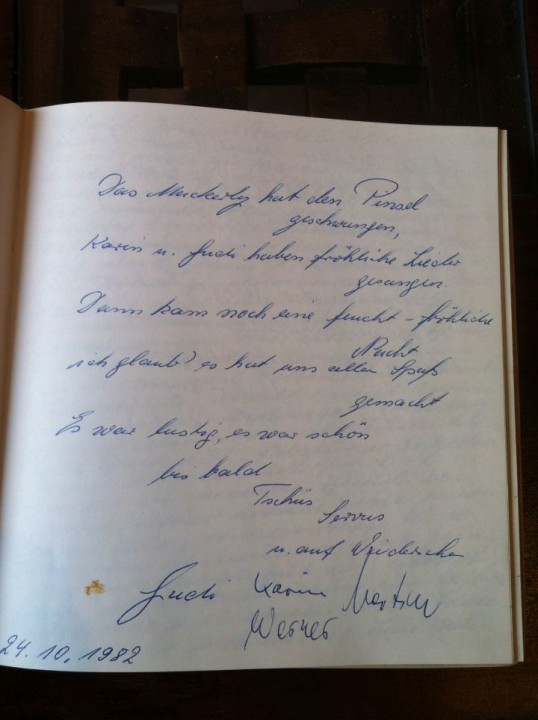 Das Muckerly hat den Pinsel
geschwungen,
Karin u. Gudi haben fröhliche Lieder
gesungen.
Dann kam noch eine feucht-fröhliche
Nacht
ich glaub' es hat uns allen Spaß
gemacht
Es war lustig, es war schön
bis bald
Tschüs
Servus
u. auf Wiedersehn
Gudi Karin Martin
Werner
24.10.1982